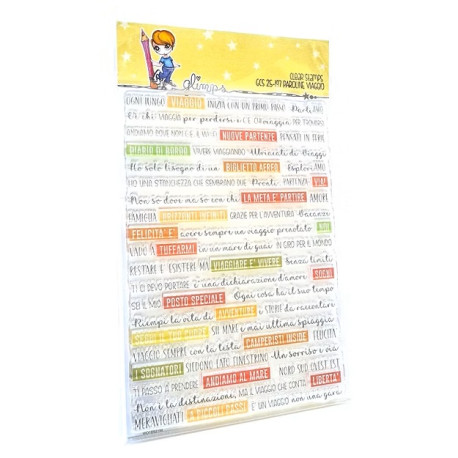 glimps
CLEAR STAMPS
GCS 25-197 PAROLINE VIAGGIO
OGNI LUNGO VIAGGIO INIZIA CON UN PRIMO PASSO
C'è chi VIAGGIO per perdersi e C'È CHI viaggia PER TROVARSI
NUOVE PARTENZE PENSATI IN FERIE
DIARIO DI BORDO VIVERE VIAGGIANDO Ubriacati di Viaggi
Ho solo bisogno di un BIGLIETTO AEREO Esploriamo
HO UNO STANCHEZZA CHE SEMBRANO DUE Pronti PARTENZA VIA!
Non so dove ma so con chi LA META E' PARTIRE AMORI
FAMIGLIA ORIZZONTI INFINITI GRAZIE PER L'AVVENTURA Vacanze
FELICITA' E' avere sempre un viaggio prenotato NOI
VADO A TUFFARMI in un mare di guai IN GIRO PER IL MONDO
RESTARE È ESISTERE MA VIAGGIARE E' VIVERE Senza limiti
TI CI DEVO PORTARE è una dichiarazione d'amore SOGNI
SEI IL MIO POSTO SPECIALE Ogni cosa ha il suo tempo
Riempi la vita di AVVENTURE E STORIE da raccontare
SEGUI IL TUO CUORE SU MARI e mai ultima spiaggia
VIAGGIO SEMPRE con la testa CAMPERISTI INSIDE FELICITÀ
I SOGNATORI SIEDONO LATO FINESTRINO Un sorriso e via
TI PASSO A PRENDERE ANDIAMO AL MARE NORD SUD OVEST EST
Non è la destinazione, MA IL VIAGGIO CHE CONTA LIBERTA'
MERAVIGLIATI A PICCOLI PASSI È UN VIAGGIO non una gara